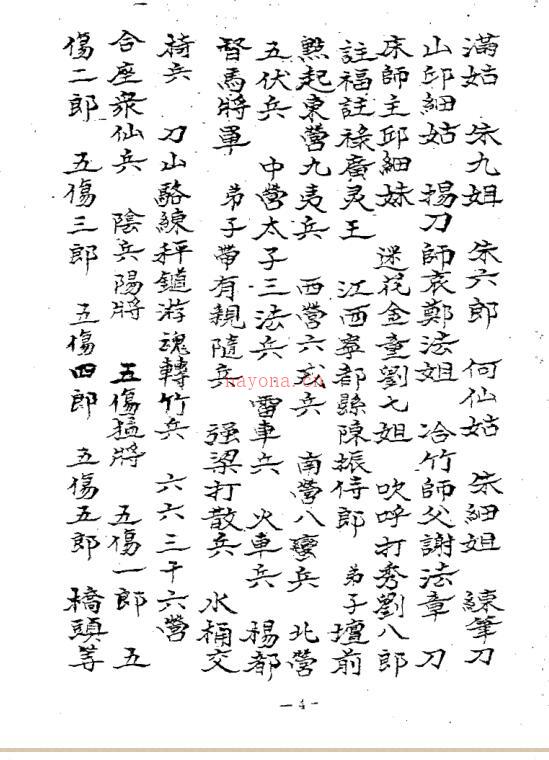 滿姑 朱九姐 朱六郎 何仙姑 朱細姐 練筆刀
山邱細姑 揚刀師袁鄭法姐 冶竹師父謝法章 刀
床師主邱細妹 迷花金童劉七姐 吹呼打秀劉八郎
註福註祿廣灵王 江西寧都縣陳振侍郎 弟子壇前
㸃起東營九夷兵 西營六戎兵 南營八蠻兵 北營
五伏兵 中營太子三法兵 雷車兵 火車兵 楊都
督馬將軍 弟子帶有親隨兵 强梁打散兵 水桶交
椅兵 刀山駱練秤鎚游魂轉竹兵 六六三十六營
合座衆仙兵 陰兵陽將 五傷猛將 五傷一郎 五
傷二郎 五傷三郎 五傷四郎 五傷五郎 橋頭等
-4-
nayona.cn